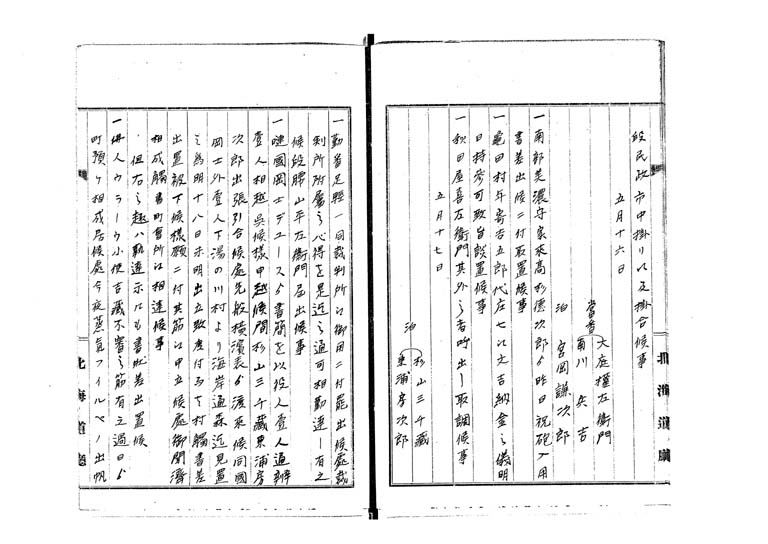 段民政市中掛リ以及掛合候事
五月十六日
當番
大庭權左衛門
・川矢吉
泊 宮岡謙次郎
一南部美濃守家来高利徳次郎ゟ昨日祝砲入用
書差出候ニ付取置候事
一亀田村年寄吉五郎代庄七以之吉納金之儀明
日持参可致旨談置候事
一秋田屋喜左衛門其外之者呼出し取調候事
五月十七日
杉山三千藏
泊 東浦房次郎
一勤番足輕一同裁判所江御用ニ付罷出候處裁
判所附属之心得を是迄之通可相勤達し有之
候段腰山平左衛門届出候事
一嘆國岡士デユースゟ書簡を以役人壹人通辨
壹人相越呉候様申越候間杉山三千藏東浦房
次郎出張引合候處先般横濱表ゟ渡来候同國
岡士外壹人下湯の川村より海岸通森迄見置
之為明十八日未明出立致度付而者村觸書差
出置被下候様願ニ付其筋江申立候處御聞濟
相成觸書町會所江相達候事
但右之趣ハ・達示江も書状差出置候
一佛人ウラーウ小使吉藏不審之筋有之過日ゟ
町預ヶ相成居候處今夜蒸気フイルベノ出帆
北海道廳
北海道廳